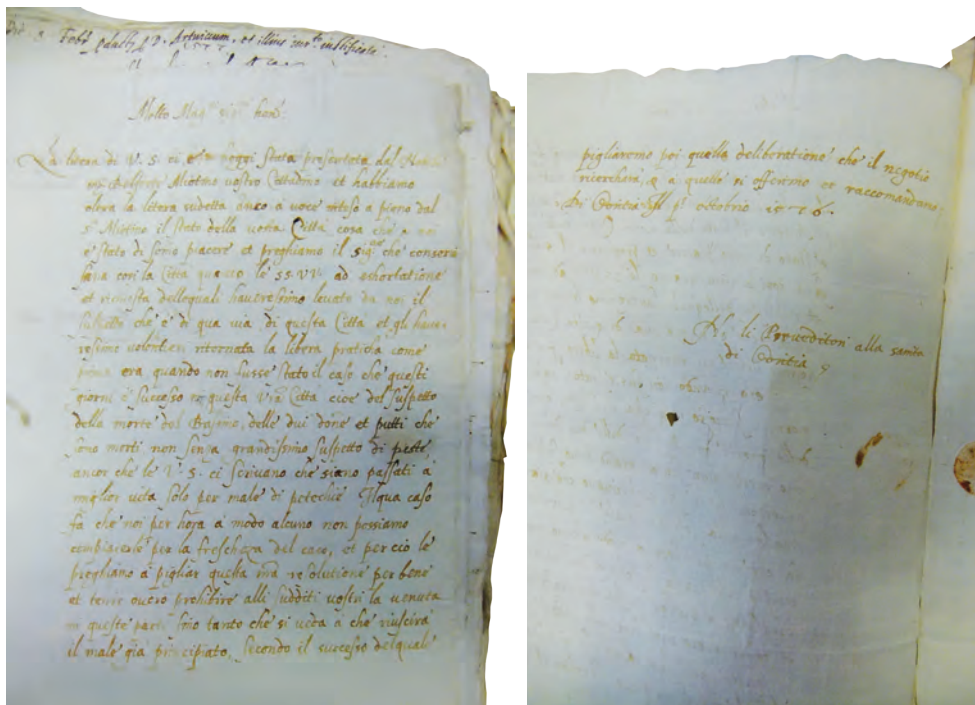 Molto Mag.ci sig.ri hon.di
La litera di V. S. ci è hoggi stata presentata dal
vostro Cittadino et habbiamo
oltra la litera sudetta anco a voce inteso a pieno dal
il stato della vostra Città cosa che a noi
è stato di somo piacere et preghiamo il Sig.or che conservi
sana cori la Città quanto le SS. VV. ad eshortatione
et richiesta dellequali haveressimo levato da noi il
suspetto che è di qua via di questa Citta et gli have-
ressimo volontieri ritornata la libera praticha come
prima era quando non fusse stato il caso che questi
giorni è successo in questa Vra Città cioè del suspetto
della morte del delle dui done et putti che
sono morti non senza grandissimo suspetto di peste
ancor che le V. S. ci scrivano che siano passati a
miglior vita solo per male di petechie Ilqua caso
fa che noi per hora a modo alcuno non possiamo
compiacerle per la freschezza del caso, et per ciò le
preghiamo a pigliar questa nra resolutione per bene
et tenire overo prohibire alli sudditi vostri la venuta
in queste parti solo tanto che si veda a che riuscirà
il male già principiato, secondo il successo delqual
pigliaremo poi quella deliberatione che il negotio
ricercherà, et a quelle si offerimo et raccomandiamo.
Di Goritia octobrio 1576.
li Proveditori alla sanità
di Goritia